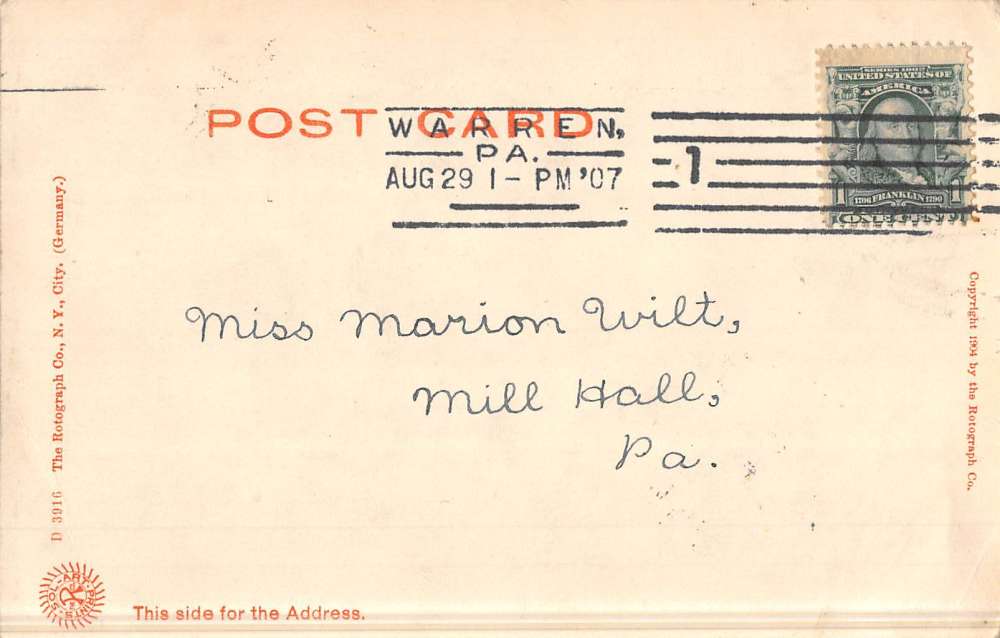 POST CARD
WARREN,
PA.
AUG 29 1 - PM '07
1
SERIES 1902
UNITED STATES OF
AMERICA
1 1
1706 FRANKLIN 1790
ONE CENT
Miss Marion Wilt,
Mill Hall,
Pa.
D 3916 The Rotograph Co., N. Y., City. (Germany.)
Copyright 1904 by the Rotograph Co.
SOL-ART PRINTS
This side for the Address.